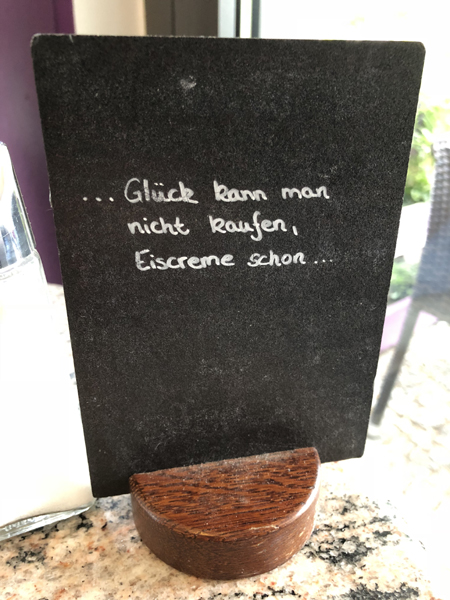 ... Glück kann man
nicht kaufen,
Eiscreme schon...